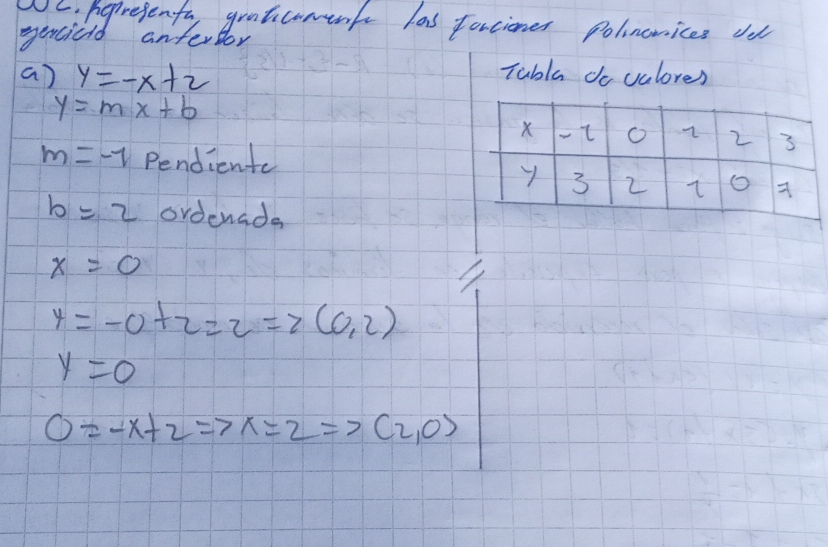 Representa graficamente las funciones Polinomicas del
ejercicio anterior
a) y = -x+2
y = mx+b
m = -1 Pendiente
b = 2 ordenada
x = 0
y = -0+2=2 => (0,2)
y = 0
0 = -x+2 => x=2 => (2,0)
Tabla de valores
x -1 0 1 2 3
y 3 2 1 0